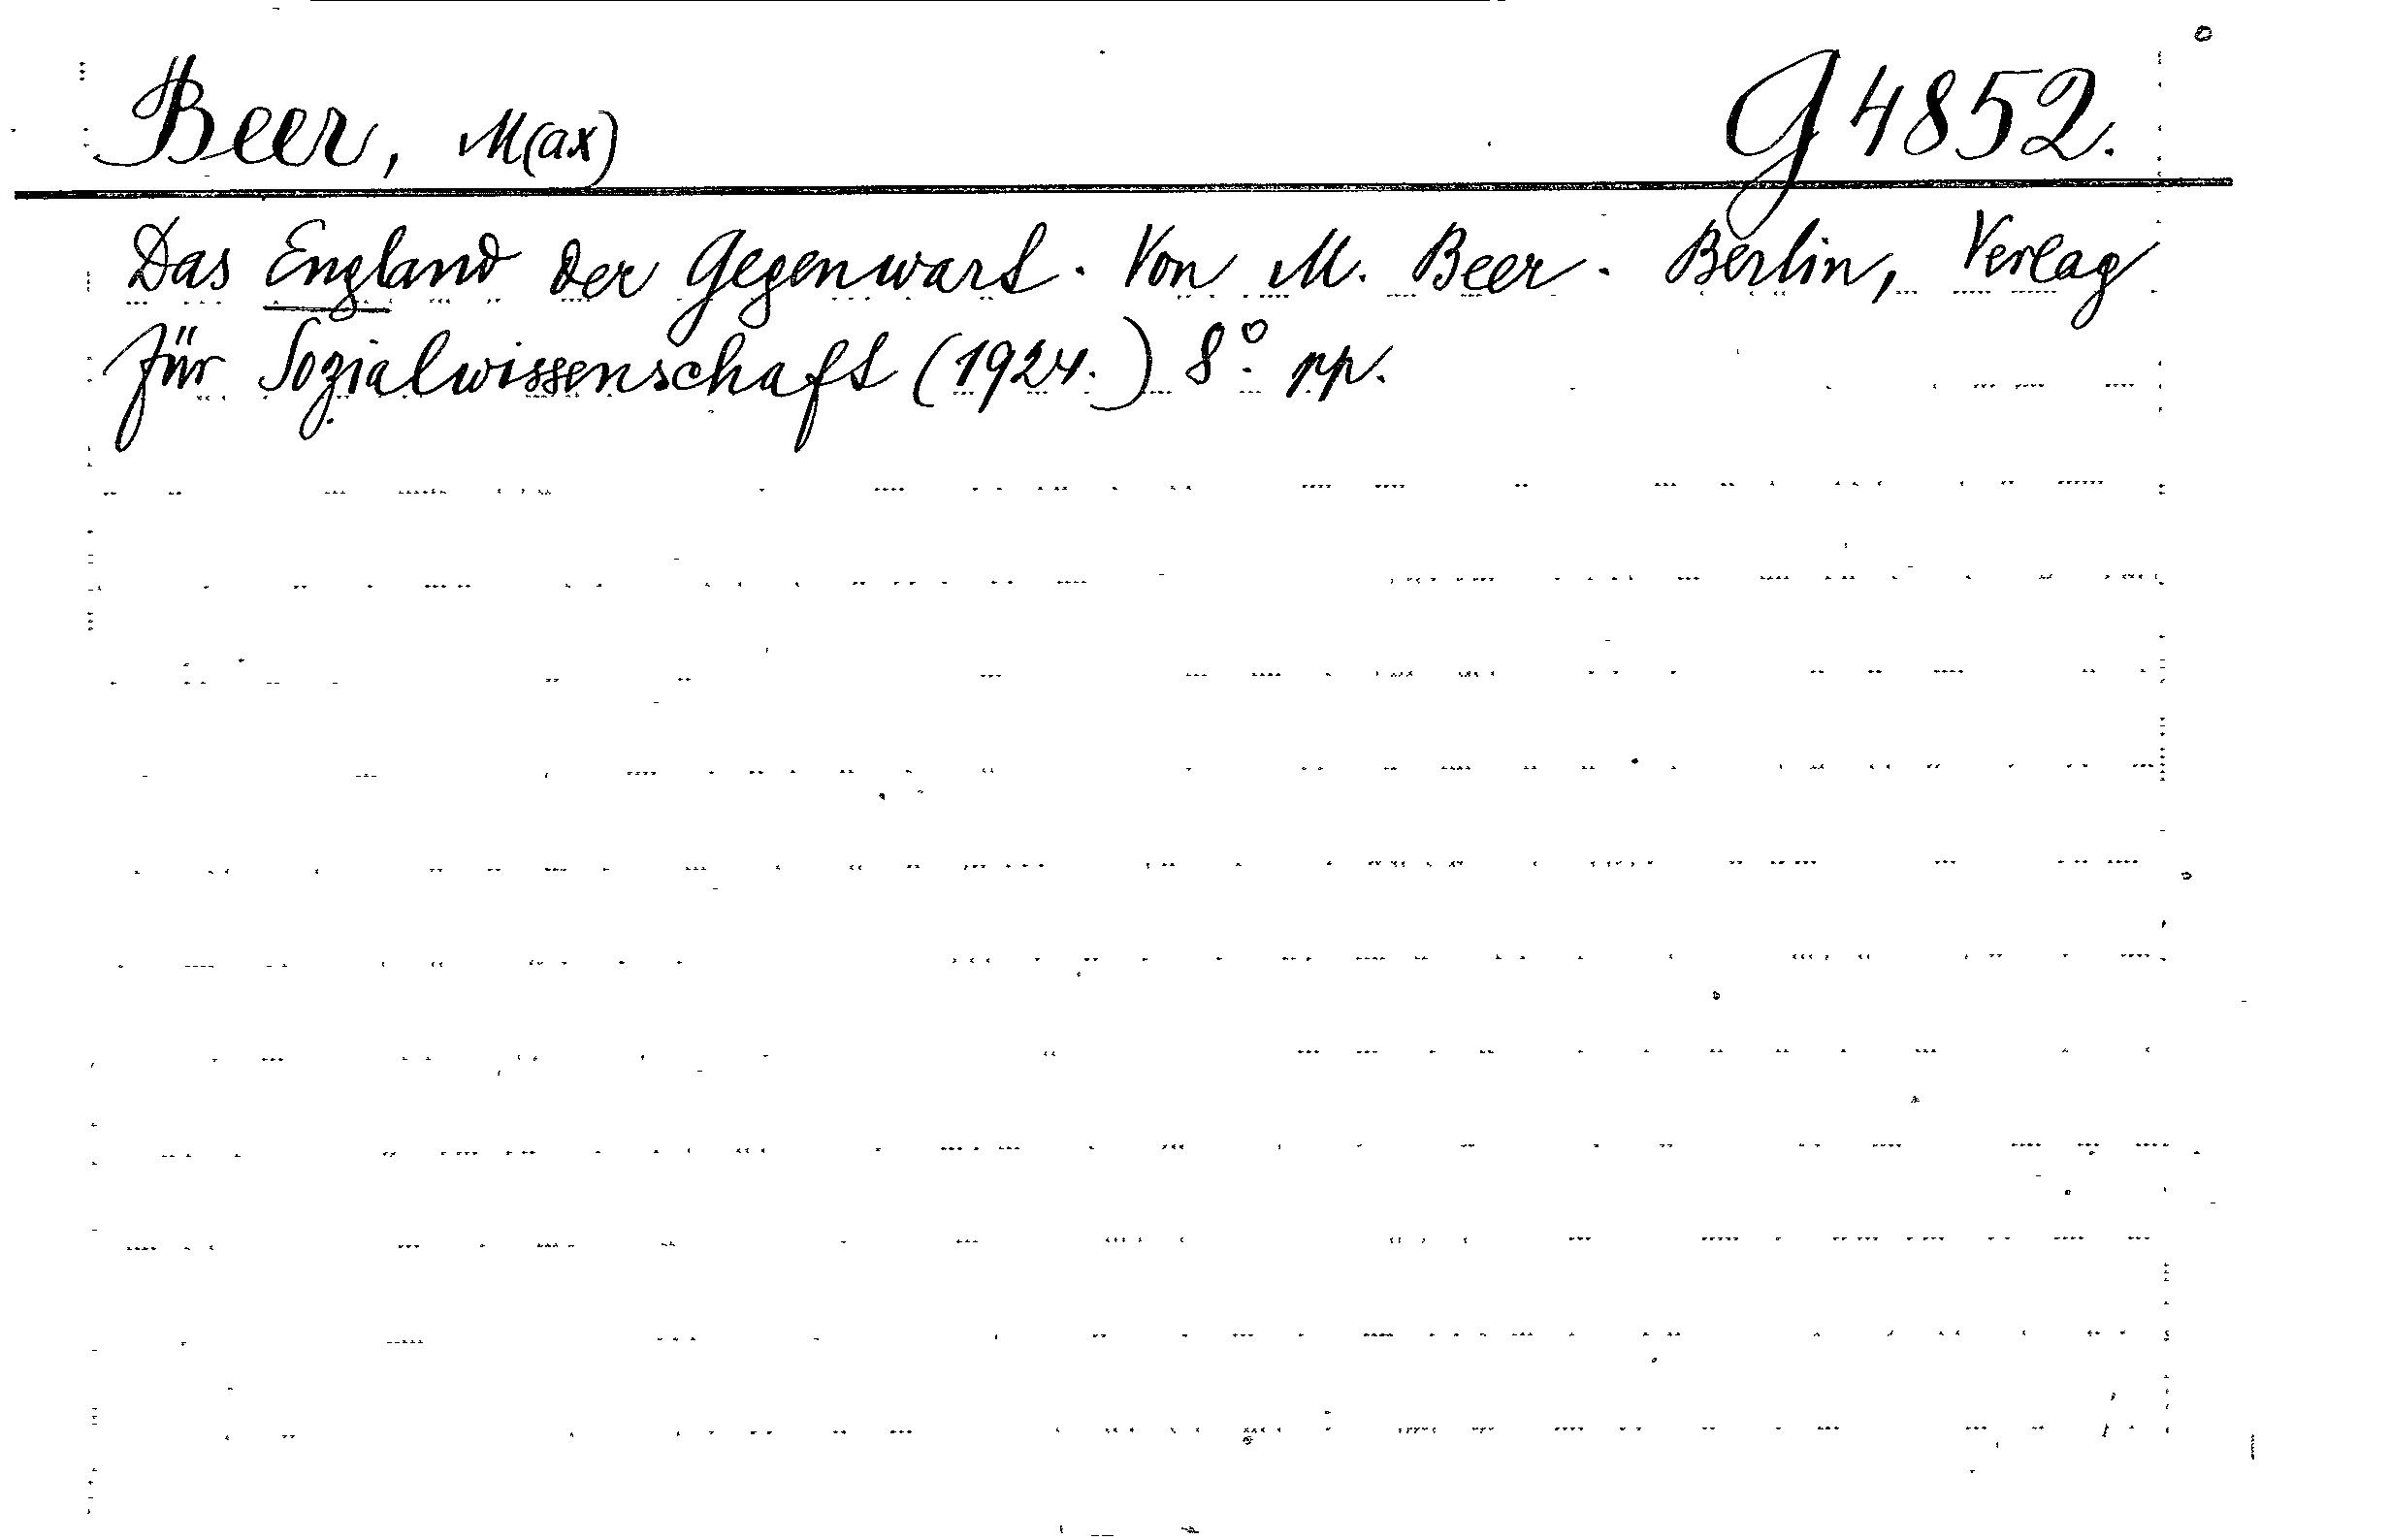 Beer, M(ax) G 4852.
Das England der Gegenwart. Von M. Beer. Berlin, Verlag
für Sozialwissenschaft (1924.) 8° pp.